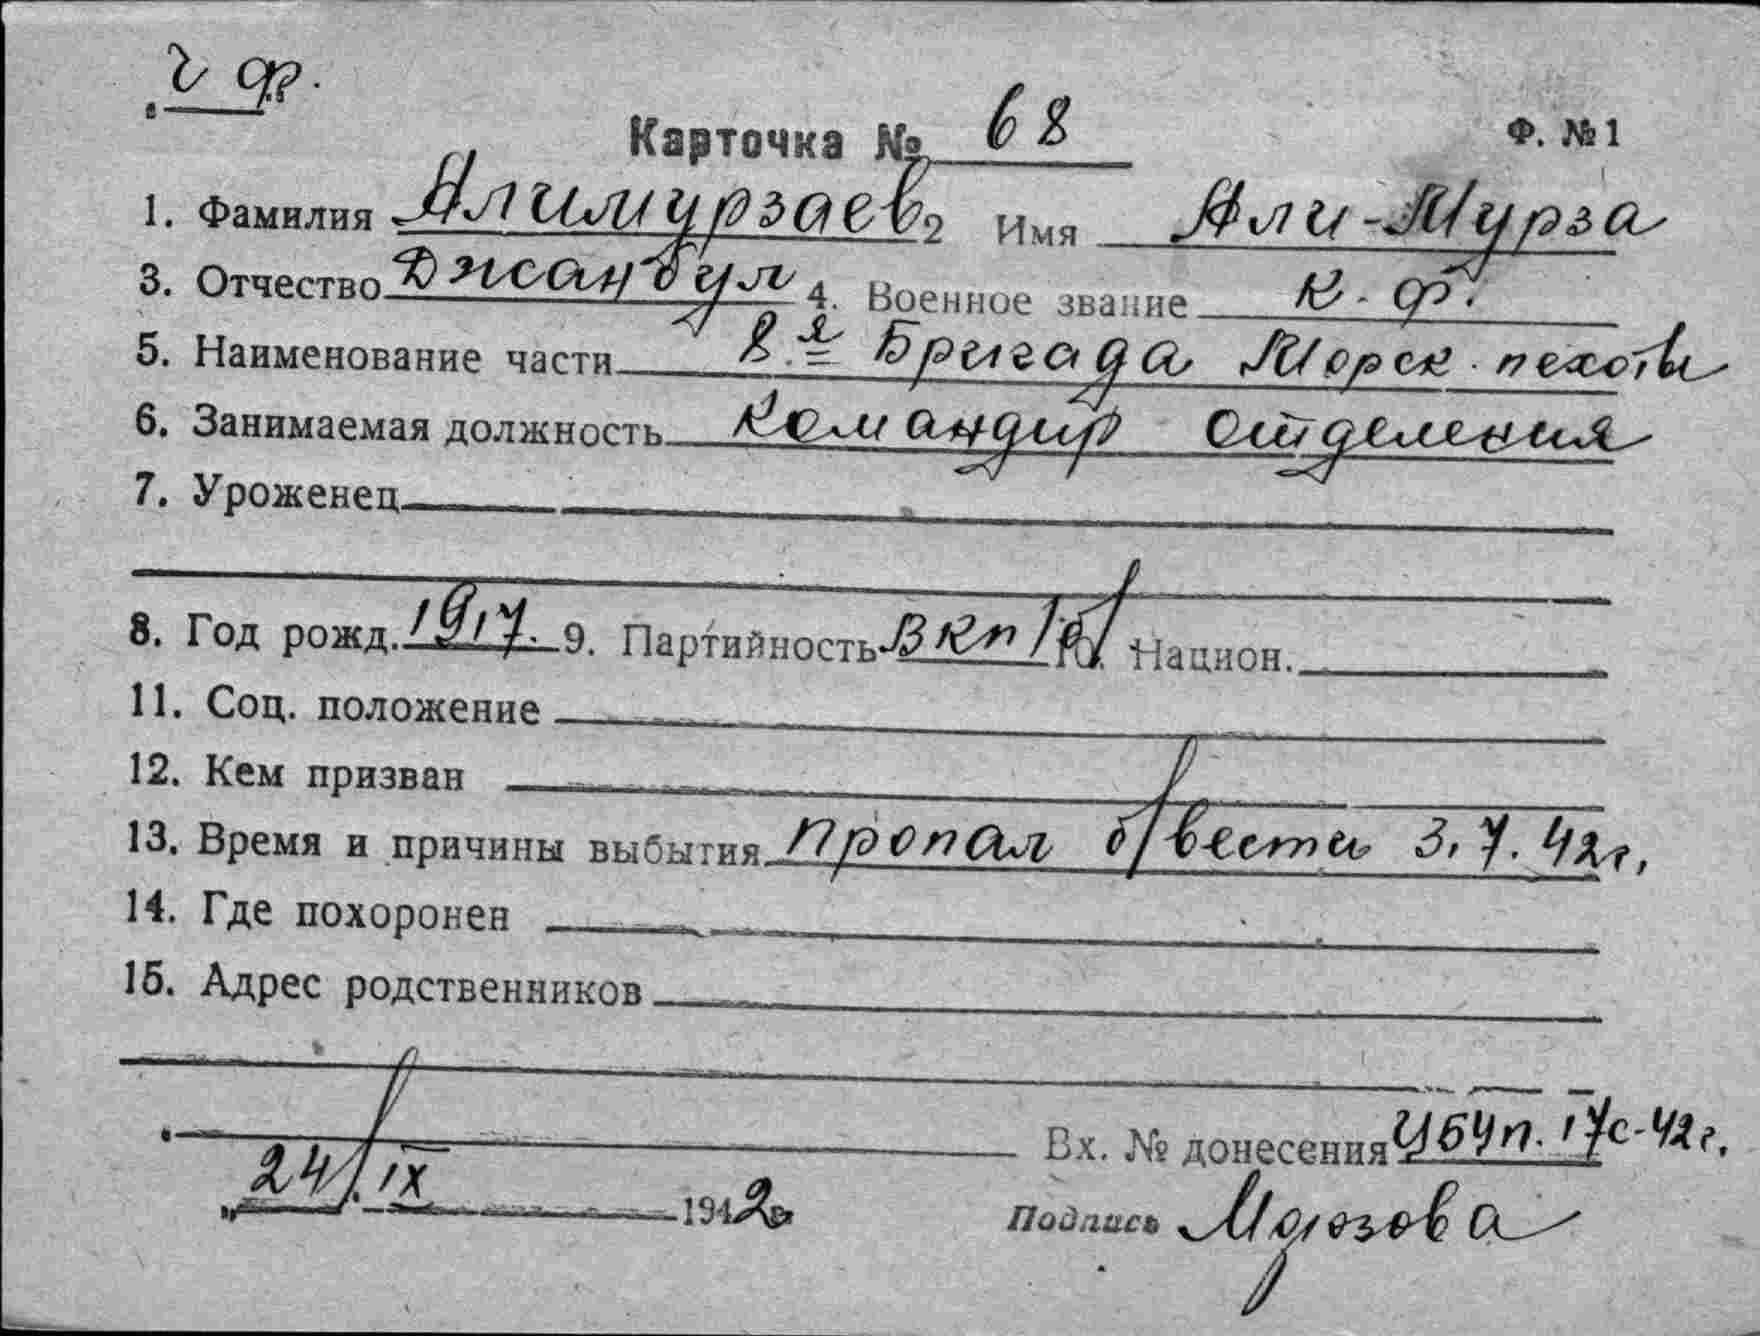 ч ф.
Карточка № 68 Ф. №1
1. Фамилия Алимурзаев 2 Имя Али-Мурза
3. Отчество Джанбул 4. Военное звание к. ф.
5. Наименование части 8.я Бригада Морск. пехоты
6. Занимаемая должность Командир отделения
7. Уроженец
8. Год рожд. 1917. 9. Партийность ВКП/б/ 10. Национ.
11. Соц. положение
12. Кем призван
13. Время и причины выбытия Пропал б/вести 3.7.42г.
14. Где похоронен
15. Адрес родственников
Вх. № донесения 17с-42г.
„24/IX 1942г.
Подпись Морозова